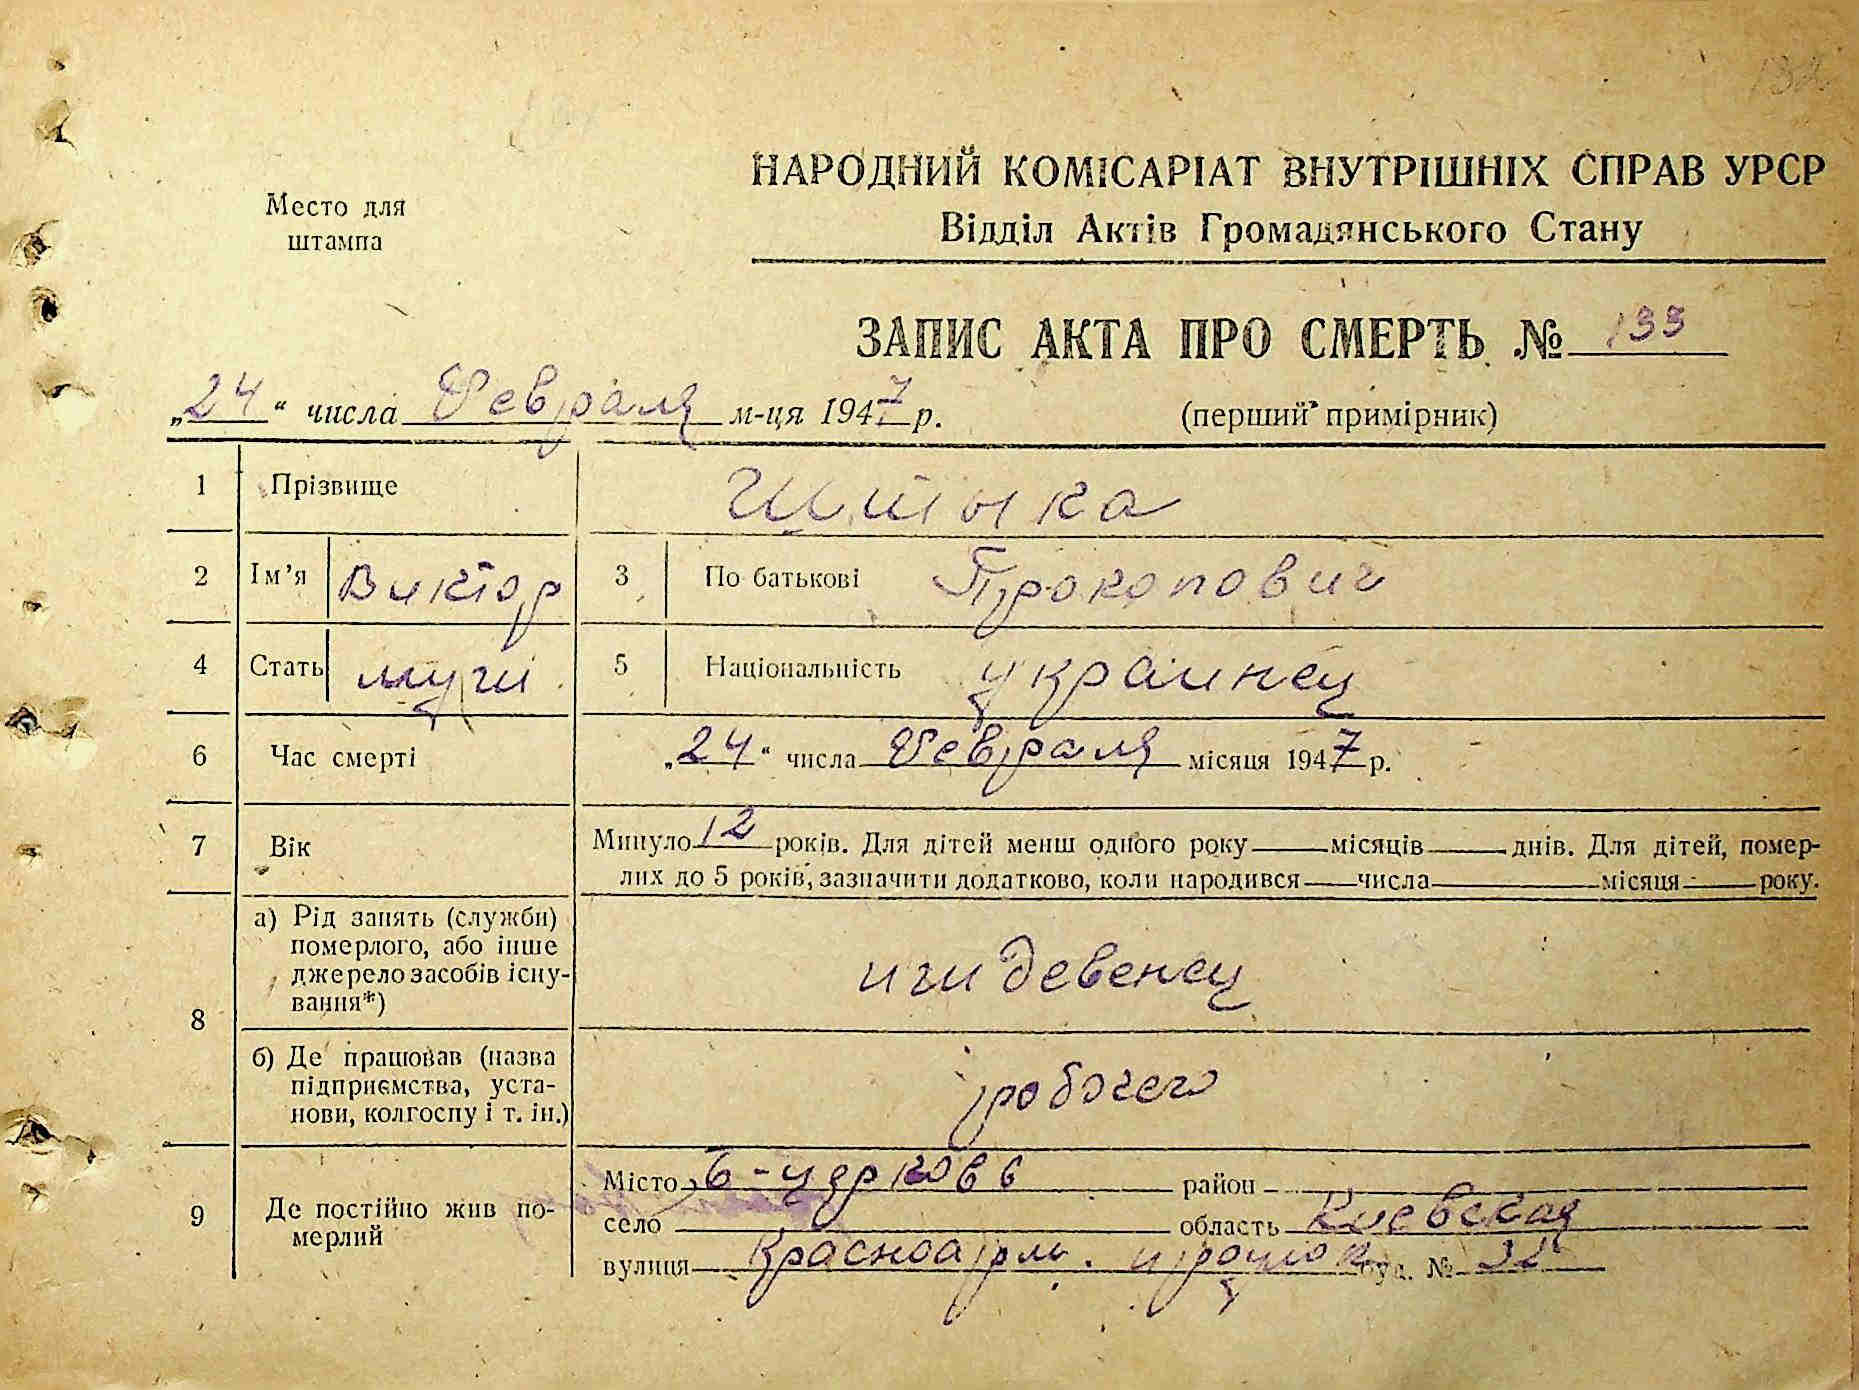 132
Место для
штампа
НАРОДНИЙ КОМІСАРІАТ ВНУТРІШНІХ СПРАВ УРСР
Відділ Актів Громадянського Стану
ЗАПИС АКТА ПРО СМЕРТЬ № 133
„24“ числа Февраля м-ця 1947 р. (перший примірник)
1 Прізвище
2 Ім’я Виктор 3 По батькові Прокопович
4 Стать муж 5 Національність украинец
6 Час смерті „24“ числа Февраля місяця 1947 р.
7 Вік Минуло 12 років. Для дітей менш одного року місяців днів. Для дітей, помер-
лих до 5 років, зазначити додатково, коли народився числа місяця року.
8 а) Рід занять (служби)
померлого, або інше
джерело засобів існу-
вання*)
иждевенец
б) Де працював (назва
підприємства, уста-
нови, колгоспу і т. ін.)
рабочего
9 Де постійно жив по-
мерлий
Місто Б-церковь район
село область Киевская
вулиця Красноарм. буд. №